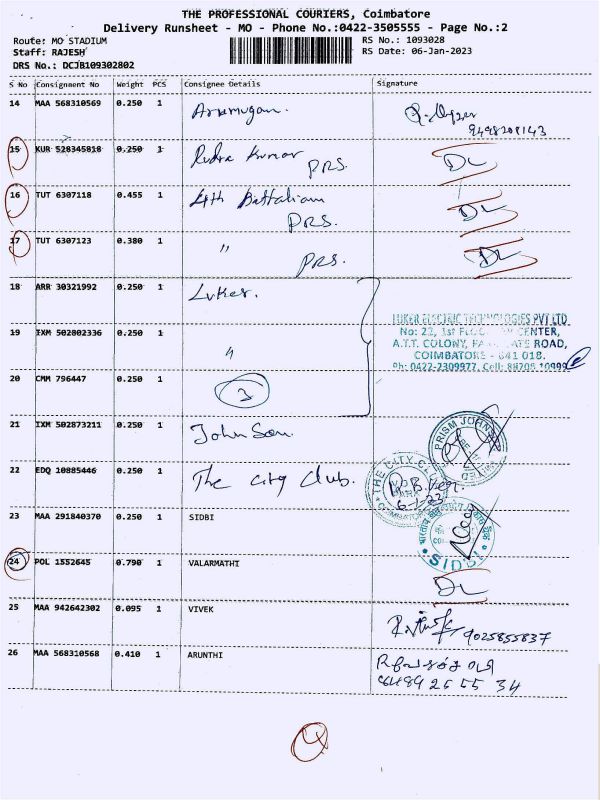 THE PROFESSIONAL COURIERS, Coimbatore
Delivery Runsheet - MO - Phone No.:0422-3505555 - Page No.:2
Route: MO STADIUM
RS No.: 1093028
Staff: RAJESH
RS Date: 06-Jan-2023
DRS No.: DCJB109302802
S No Consignment No Weight PCS Consignee Details Signature
14 MAA 568310569 0.250 1 Arumugam.
9498208143
15 KUR 528345818 0.250 1 Rudra Kumar PRS. DL
16 TUT 6307118 0.455 1 4th Battaliam PRS. DL
17 TUT 6307123 0.380 1 " PRS. DL
18 ARR 30321992 0.250 1 Luker.
LUKER ELECTRIC TECHNOLOGIES PVT LTD
No: 22, 1st CENTER,
19 IXM 502802336 0.250 1 "
A.T.T. COLONY, ROAD,
COIMBATORE - 641 018.
Ph: 0422-2309977, Cell:
20 CMM 796447 0.250 1 3
21 IXM 502873211 0.250 1 John Son.
PRISM
22 EDQ 10885446 0.250 1 The City Club.
THE CITY CLUB
6-1-23
23 MAA 291840370 0.250 1 SIDBI
SIDBI
24 POL 1552645 0.790 1 VALARMATHI DL
25 MAA 942642302 0.095 1 VIVEK 9025855837
26 MAA 568310568 0.410 1 ARUNTHI